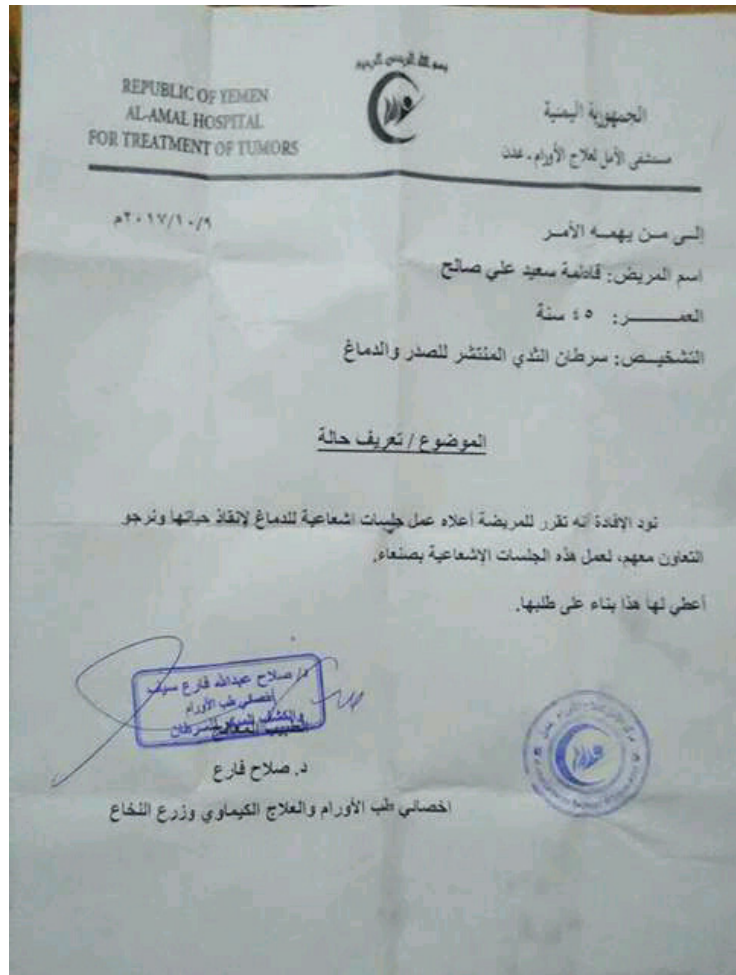 بسم الله الرحمن الرحيم
REPUBLIC OF YEMEN
AL-AMAL HOSPITAL
FOR TREATMENT OF TUMORS
الجمهورية اليمنية
مستشفى الأمل لعلاج الأورام - عدن
٢٠١٧/١٠/٩م
إلى من يهمه الأمر
اسم المريض: فاطمة سعيد علي صالح
العمـــــــر: ٤٥ سنة
التشخيـص: سرطان الثدي المنتشر للصدر والدماغ
الموضوع / تعريف حالة
نود الإفادة أنه تقرر للمريضة أعلاه عمل جلسات اشعاعية للدماغ لإنقاذ حياتها ونرجو
التعاون معهم، لعمل هذه الجلسات الإشعاعية بصنعاء.
أعطي لها هذا بناء على طلبها.
د/ صلاح عبدالله قارع سيف
أخصائي طب الأورام
والكشف المبكر للسرطان
الطبيب المعالج
د. صلاح قارع
اخصائي طب الأورام والعلاج الكيماوي وزرع النخاع